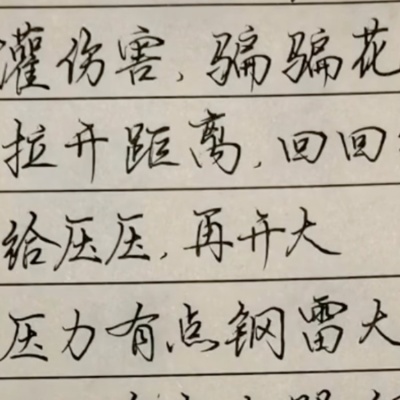 灌伤害,骗骗花
拉开距离,回回
给压压,再开大
压力有点钢雷大